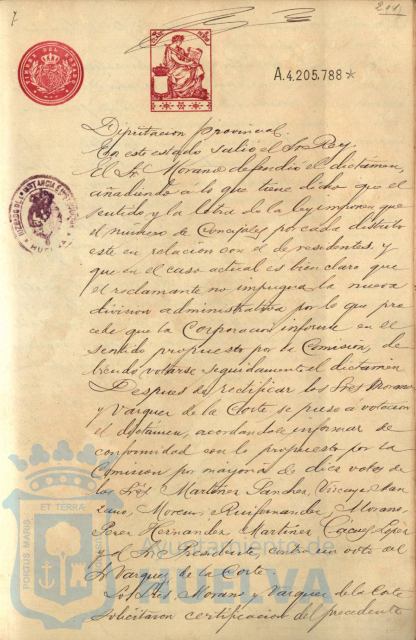 7
211
A.4.205.788*
JUZGADO DE 1ª INSTANCIA E INSTRUCCION
HUELVA
Diputacion Provincial.
En este estado salió el Sr. Rey.
El Sr. Morano defendió el dictamen,
añadiendo a lo que tiene dicho que el
sentido y la letra de la ley imponen que
el numero de Concejales por cada distrito
este en relacion con el de residentes, y
que en el caso actual es bien claro que
el reclamante no impugna la nueva
division administrativa por lo que pro
cede que la Corporacion informe en el
sentido propuesto por la Comision, de
biendo votarse seguidamente el dictamen
Despues de rectificar los Sres Morano
y Vazquez de la Corte se puso á votacion
el dictamen, acordandose informar de
conformidad con lo propuesto por la
Comision por mayoria de diez votos de
los Sres Martinez Sanchez, Vizcaya, Man
zano, Moreno, Ruifernandez, Morano,
Perez Hernandez, Martinez Lopez
y el Sr. Presidente contra un voto del
Sr Vazquez de la Corte
Los Sres Morano y Vazquez de la Corte
solicitaron certificacion del precedente
PORTUS MARIS ET TERRÆ
Ayuntamiento de
HUELVA